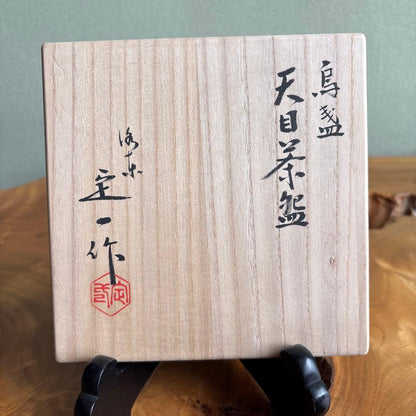 烏盞
天目茶盌
洛東
定一作